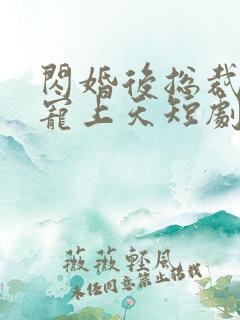 閃婚後總裁
寵上天短劇
薇薇輕風
未任同意禁止搭載